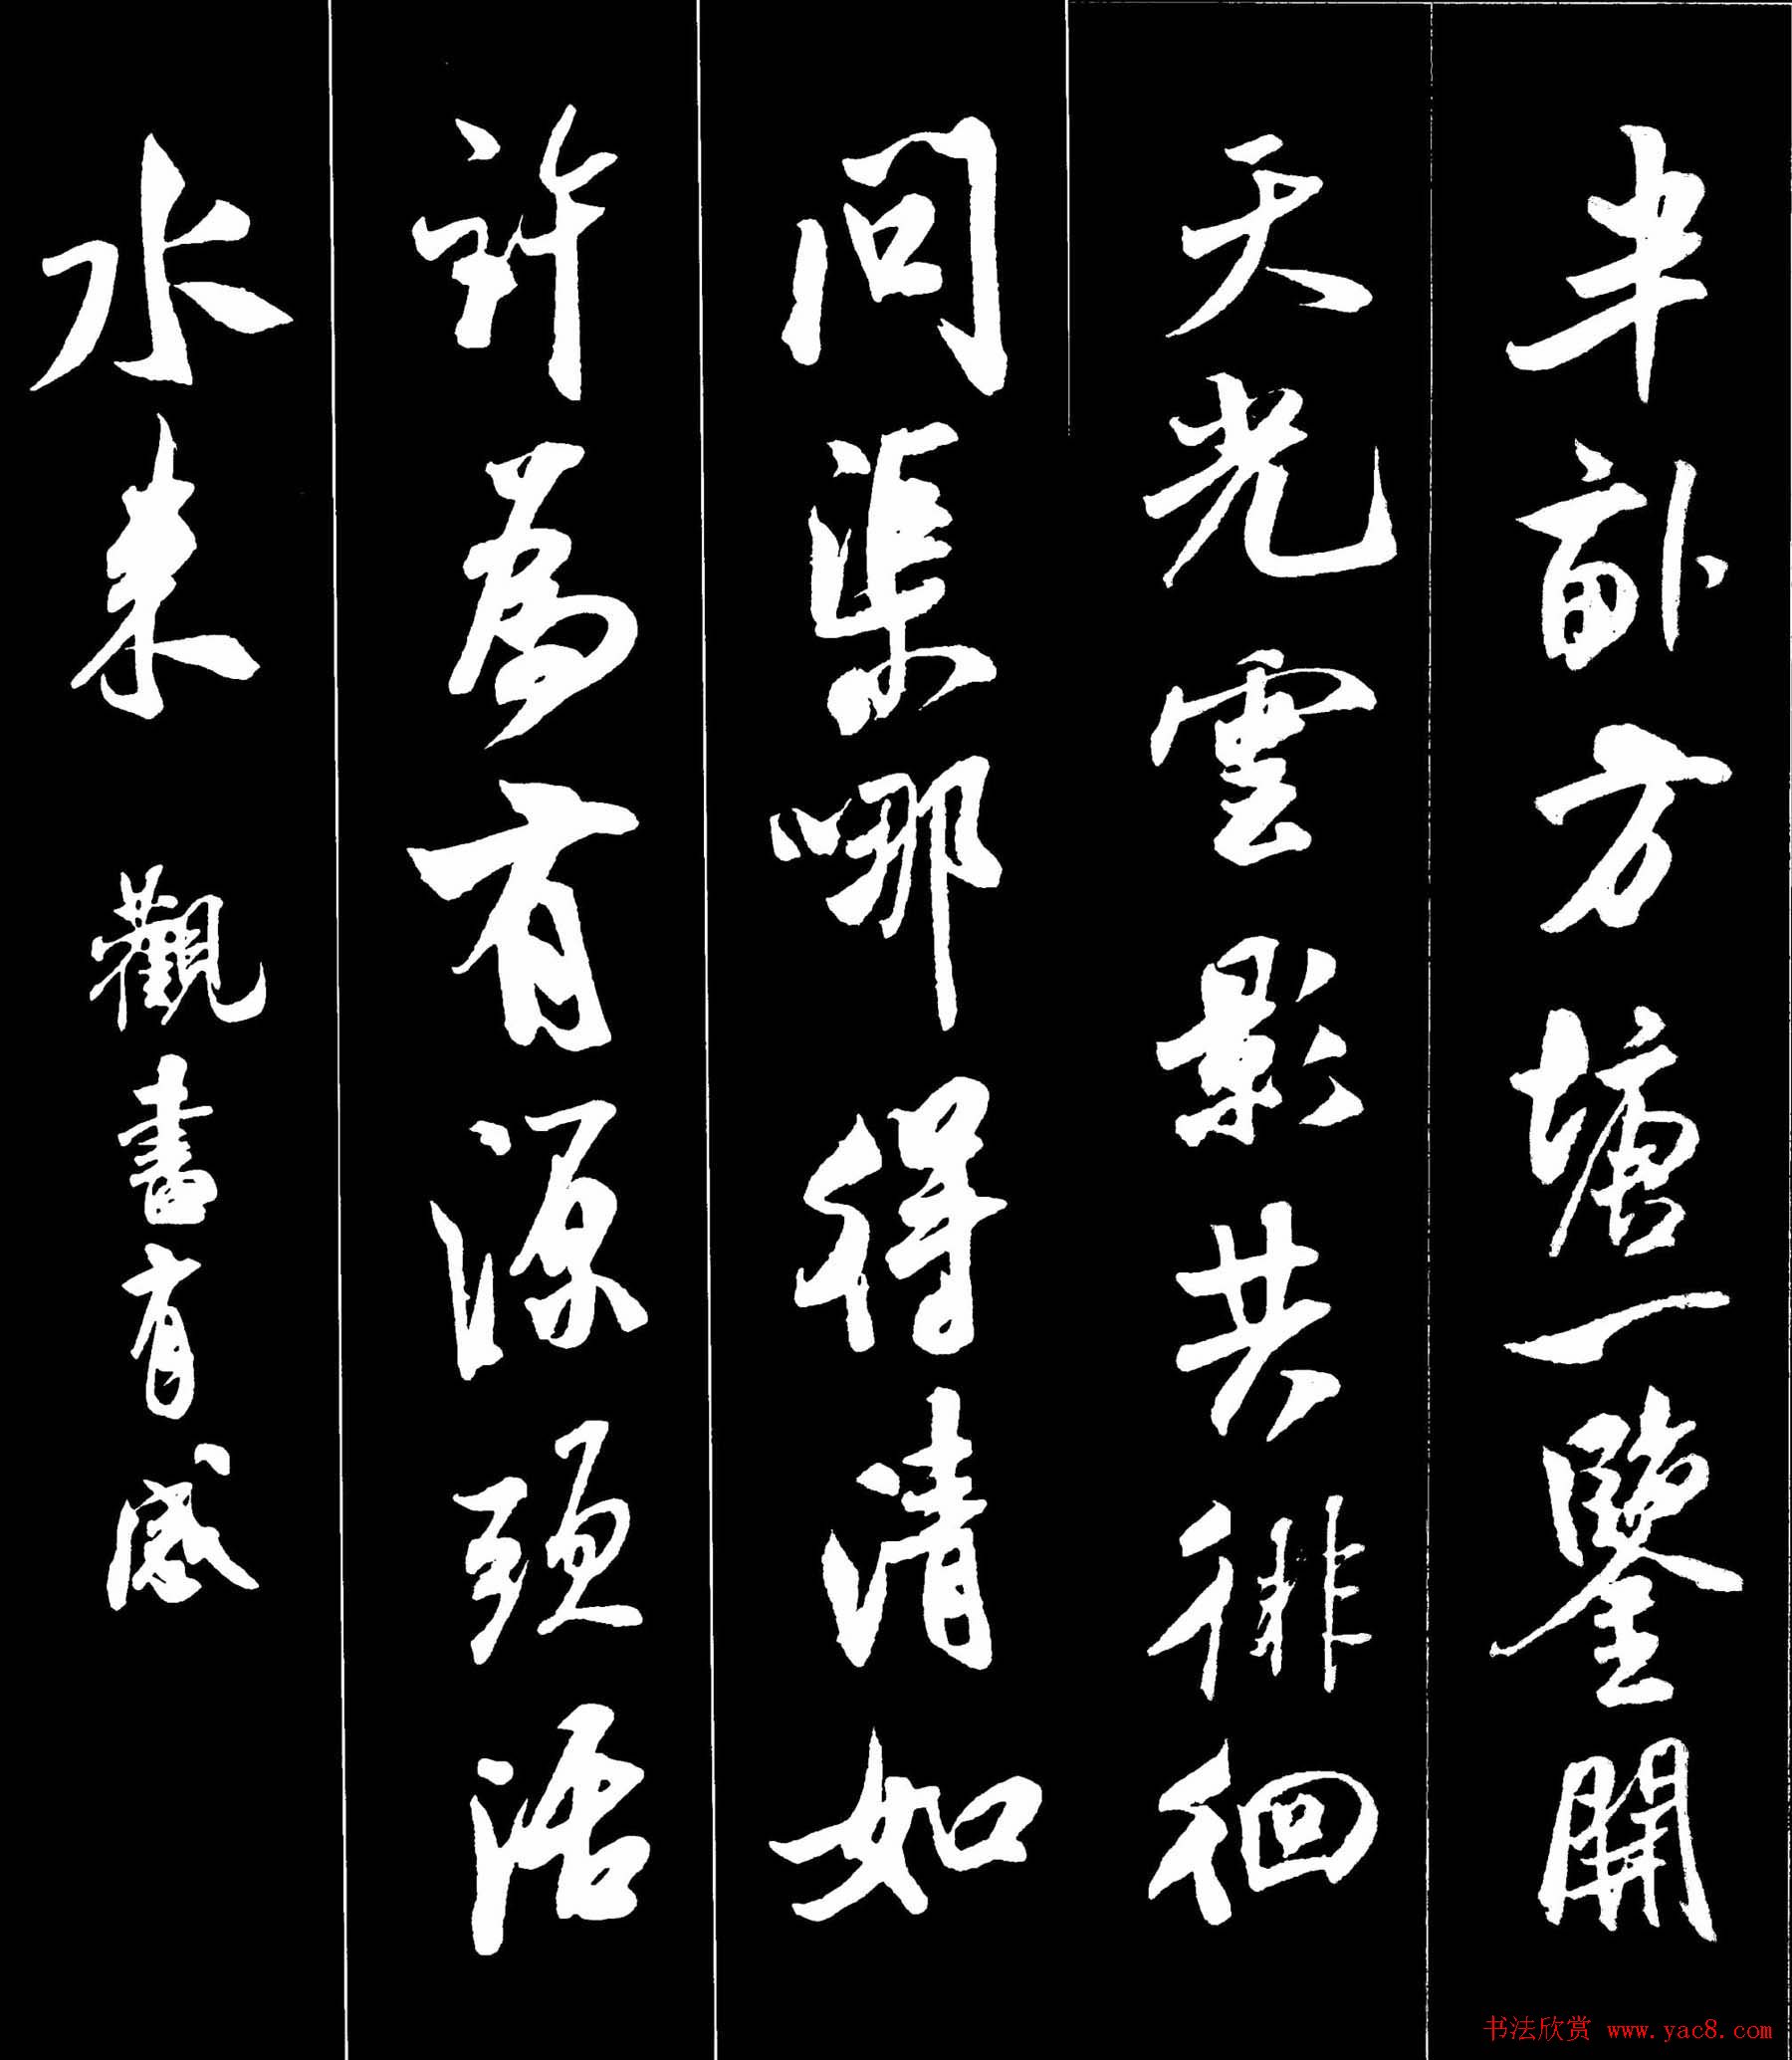 半畝方塘一鑒開
天光雲影共徘徊
問渠哪得清如
許爲有源頭活
水來 觀書有感
书法欣赏 www.yac8.com